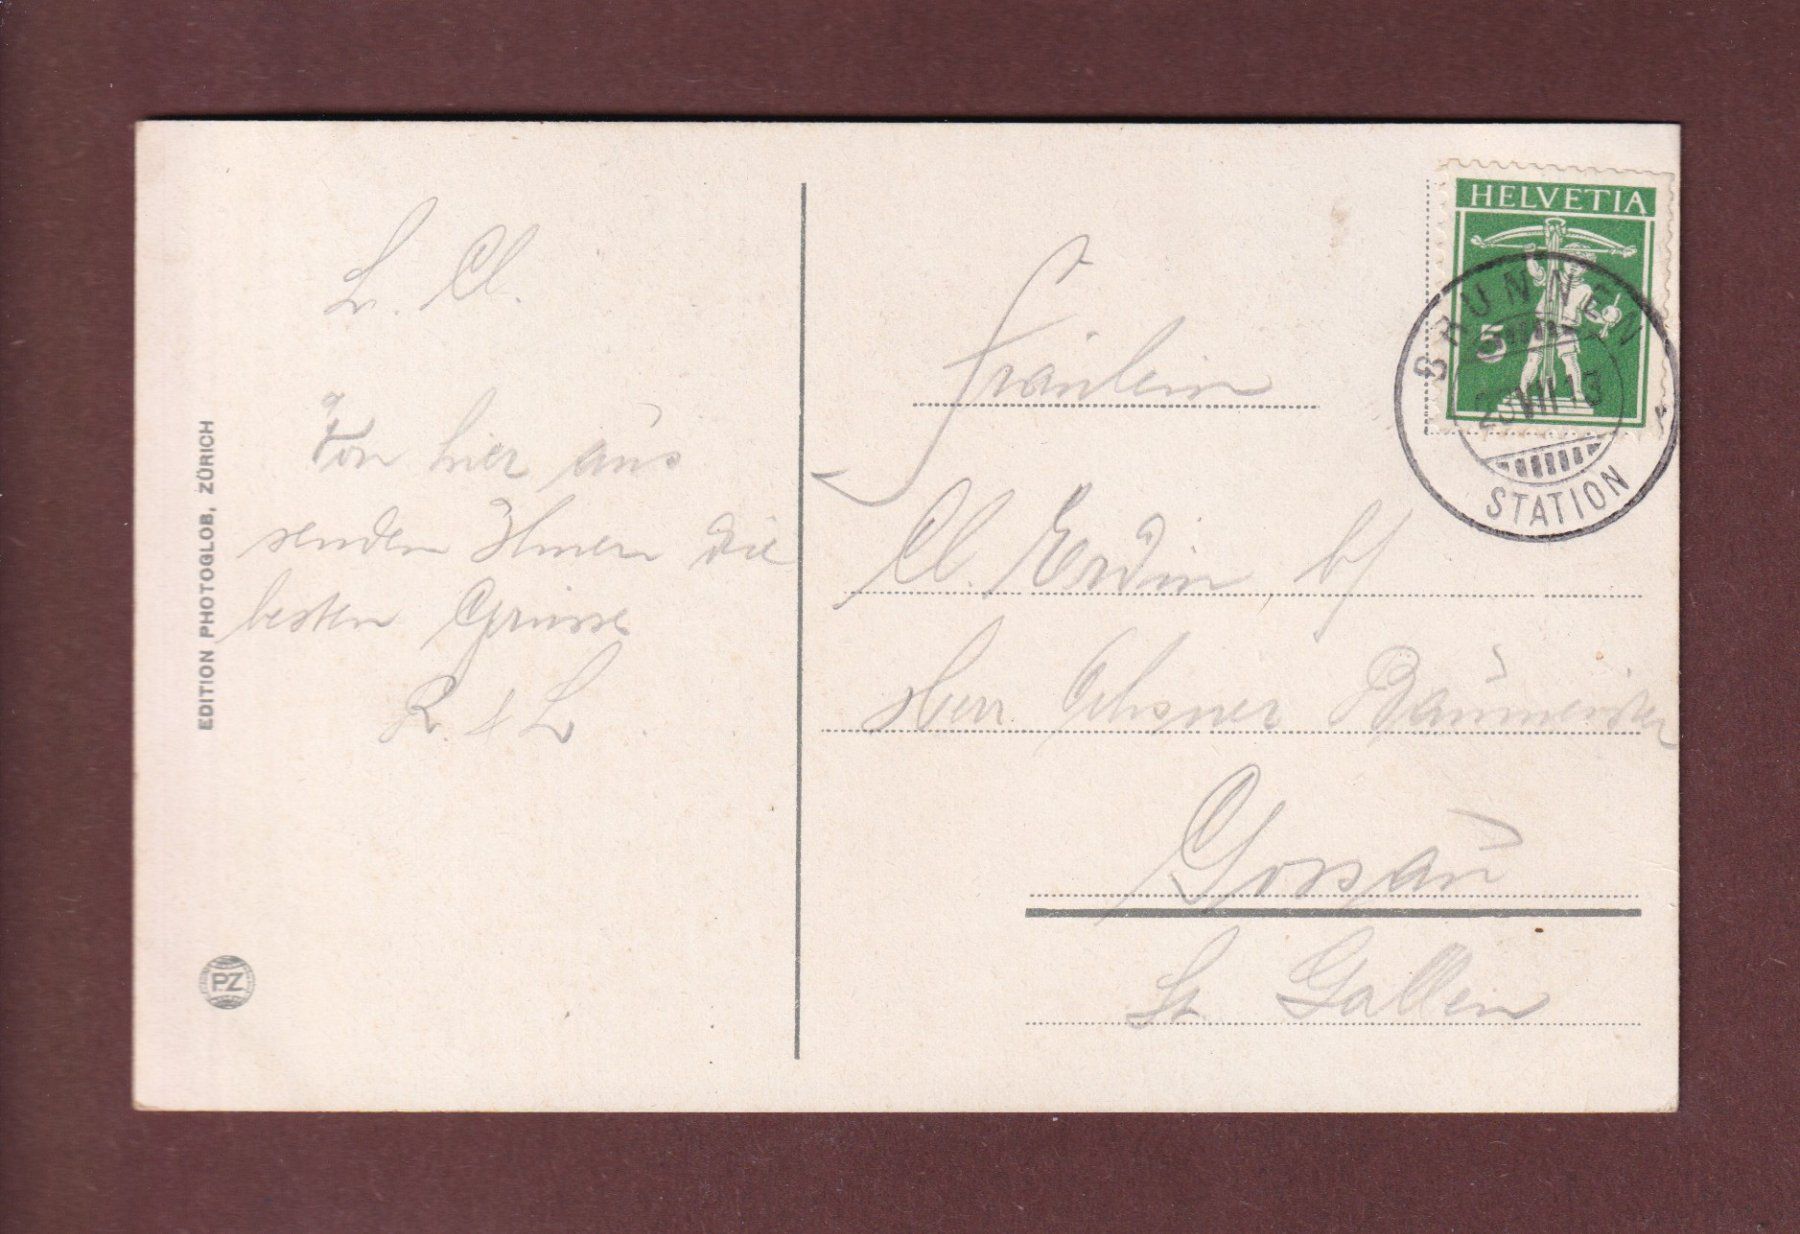 L. Cl.
Von hier aus
senden Ihnen die
besten Grüsse
R. & L.
EDITION PHOTOGLOB, ZÜRICH
PZ
HELVETIA
5
BRUNNEN
VIII 13
STATION
Fräulein
Cl. Erdin b/
Herr Ochsner Baumeister
Gossau
St. Gallen